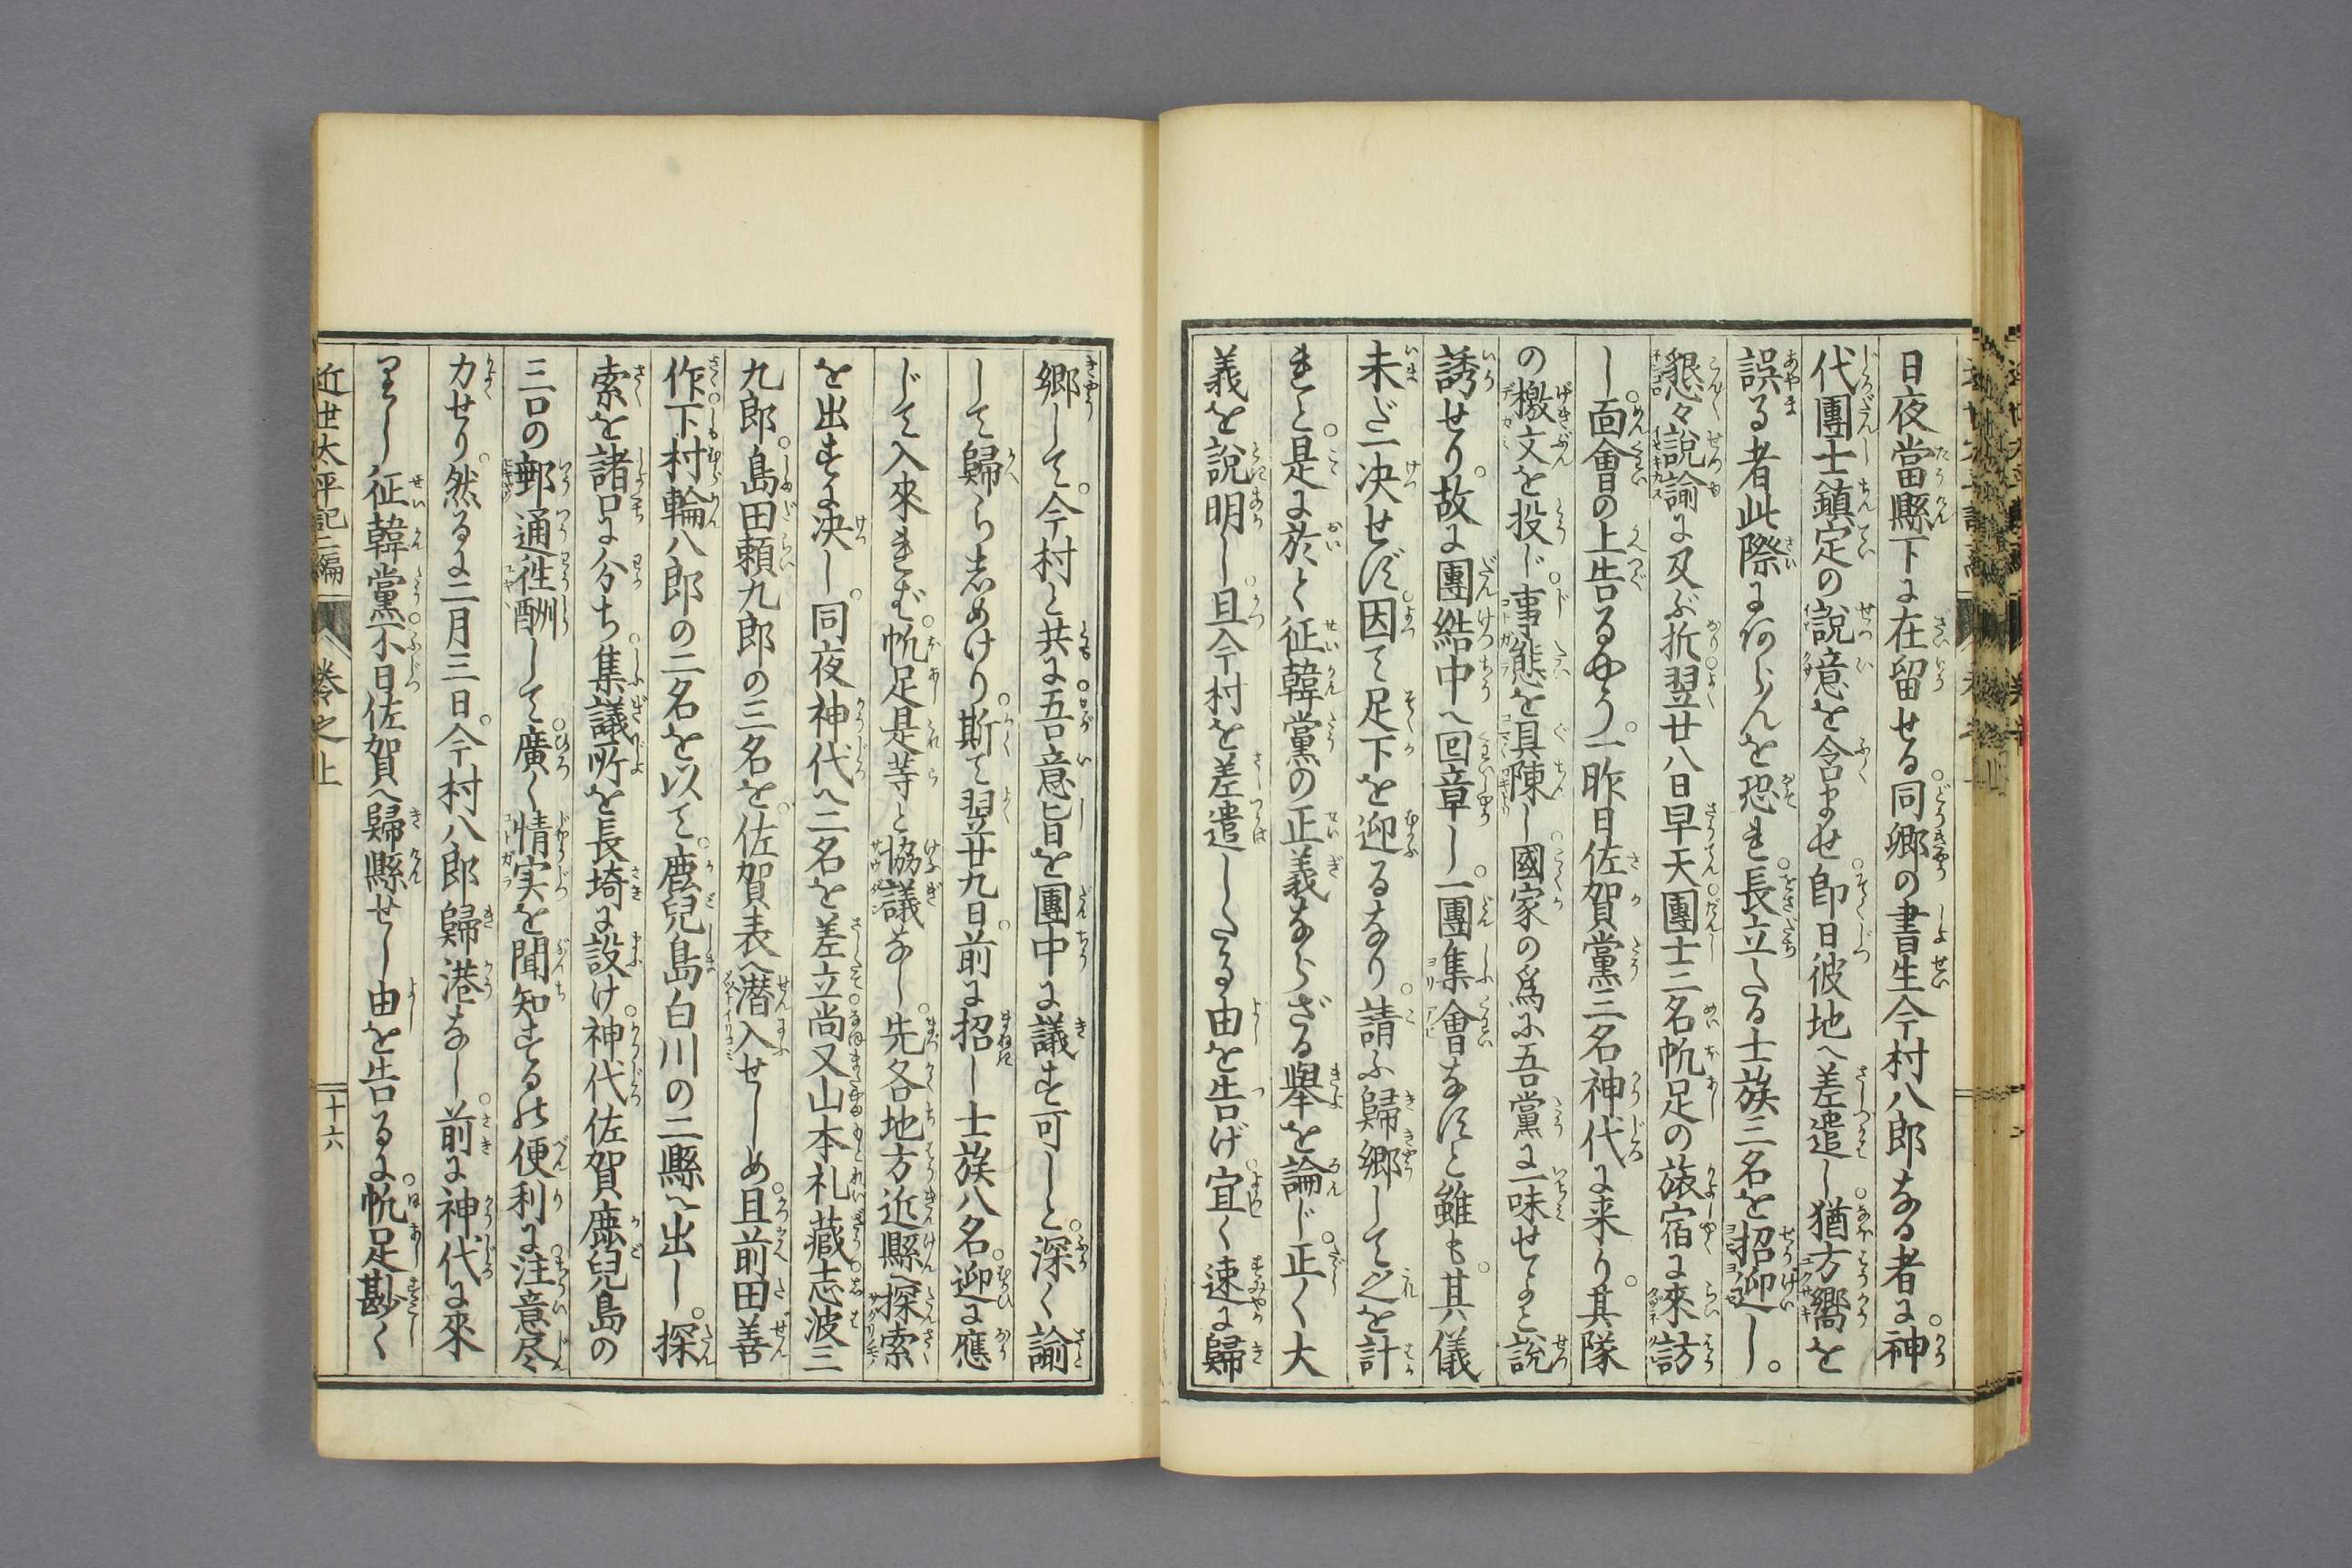 日夜當縣下に在留せる同郷の書生今村八郎なる者に。神
代團士鎮定の說意を含ませ。即日彼地へ差遣し。猶方嚮を
誤る者此際に何らんを恐れ。長立たる士族三名を招迎し。
懇々說諭に及ぶ折。翌廿八日早天。團士三名帆足の旅宿に來訪
し。面會の上告るやう。一昨日佐賀黨三名神代に来り。其隊
の檄文を投じ。事態を具陳し。國家の爲に吾黨に一味せよと說
誘せり。故に團結中へ回章し。一團集會なすと雖も。其儀
未だ一决せず。因て足下を迎るなり。請ふ歸郷して之を計
れと。是に於て征韓黨の正義ならざる舉を論じ。正く大
義を說明し。且今村を差遣したる由を告げ。宜く速に歸
郷して。今村と共に。吾意旨を團中に議す可しと。深く諭
して歸らしめけり。斯て翌廿九日。前に招し士族八名。迎に應
じて入來れば。帆足是等と協議なし。先各地方近縣へ探索
を出すに决し。同夜神代へ二名を差立。尚又山本礼藏。志波三
九郎。島田頼九郎の三名を。佐賀表へ潜入せしめ。且前田善
作。下村輪八郎の二名を以て。鹿兒島白川の二縣へ出し。探
索を諸口に分ち。集議所を長埼に設け。神代佐賀鹿兒島の
三口の郵通徃酬して。廣く情実を聞知するの便利に。注意尽
力せり。然るに二月三日。今村八郎歸港なし。前に神代に來
りし征韓黨。不日佐賀へ歸縣せし由を告るに。帆足尠く
近世太平記二編
巻之上
十六